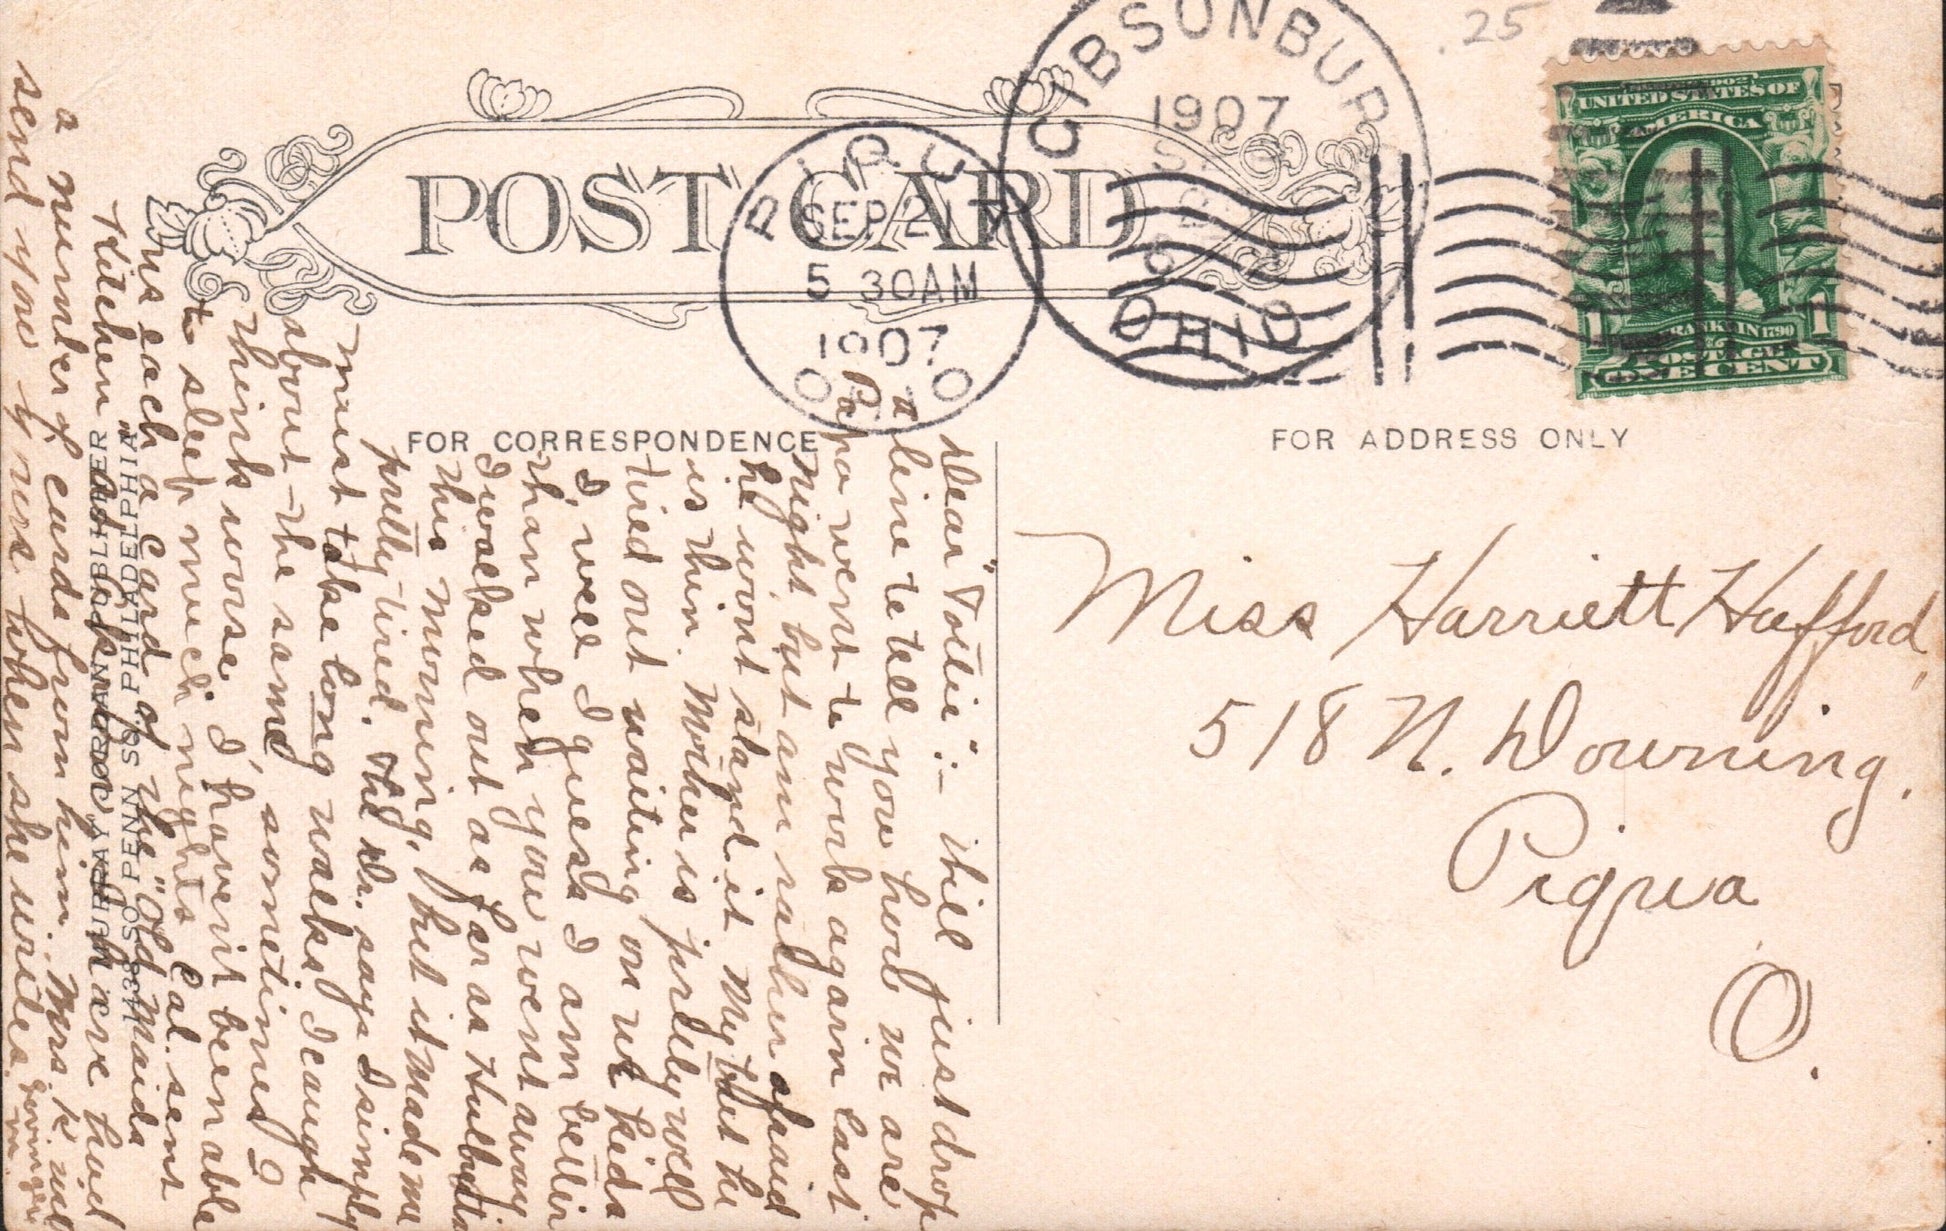 .25
GIBSONBUR
1907
OHIO
UNITED STATES OF
AMERICA
FRANKLIN 1790
POSTAGE
1 1
ONE CENT
POST CARD
PIQUA
SEP 21
5 30AM
1907
OHIO
FOR CORRESPONDENCE
FOR ADDRESS ONLY
Miss Harriett Hafford,
518 N. Downing.
Piqua
O.
Dear "Tottie":- Will just drop
a line to tell you how we are
Papa went to work again last
night, but am rather afraid
he wont stand it. My but he
is thin. Mother is pretty well
tired out waiting on us kids
I, well I guess I am better
than when you went away
I walked out as far as
this morning, but it made me
pretty tired. The Dr. says I simply
must take long walks, I cough
about the same, sometimes I
think worse. I haven't been able
to sleep much nights Cal. sent
us each a card of the "Old Maids
Kitchen" and have had
a number of cards from him. Mrs. K will
send you yours when she writes.
1438 SO. PENN SQ. PHILADELPHIA